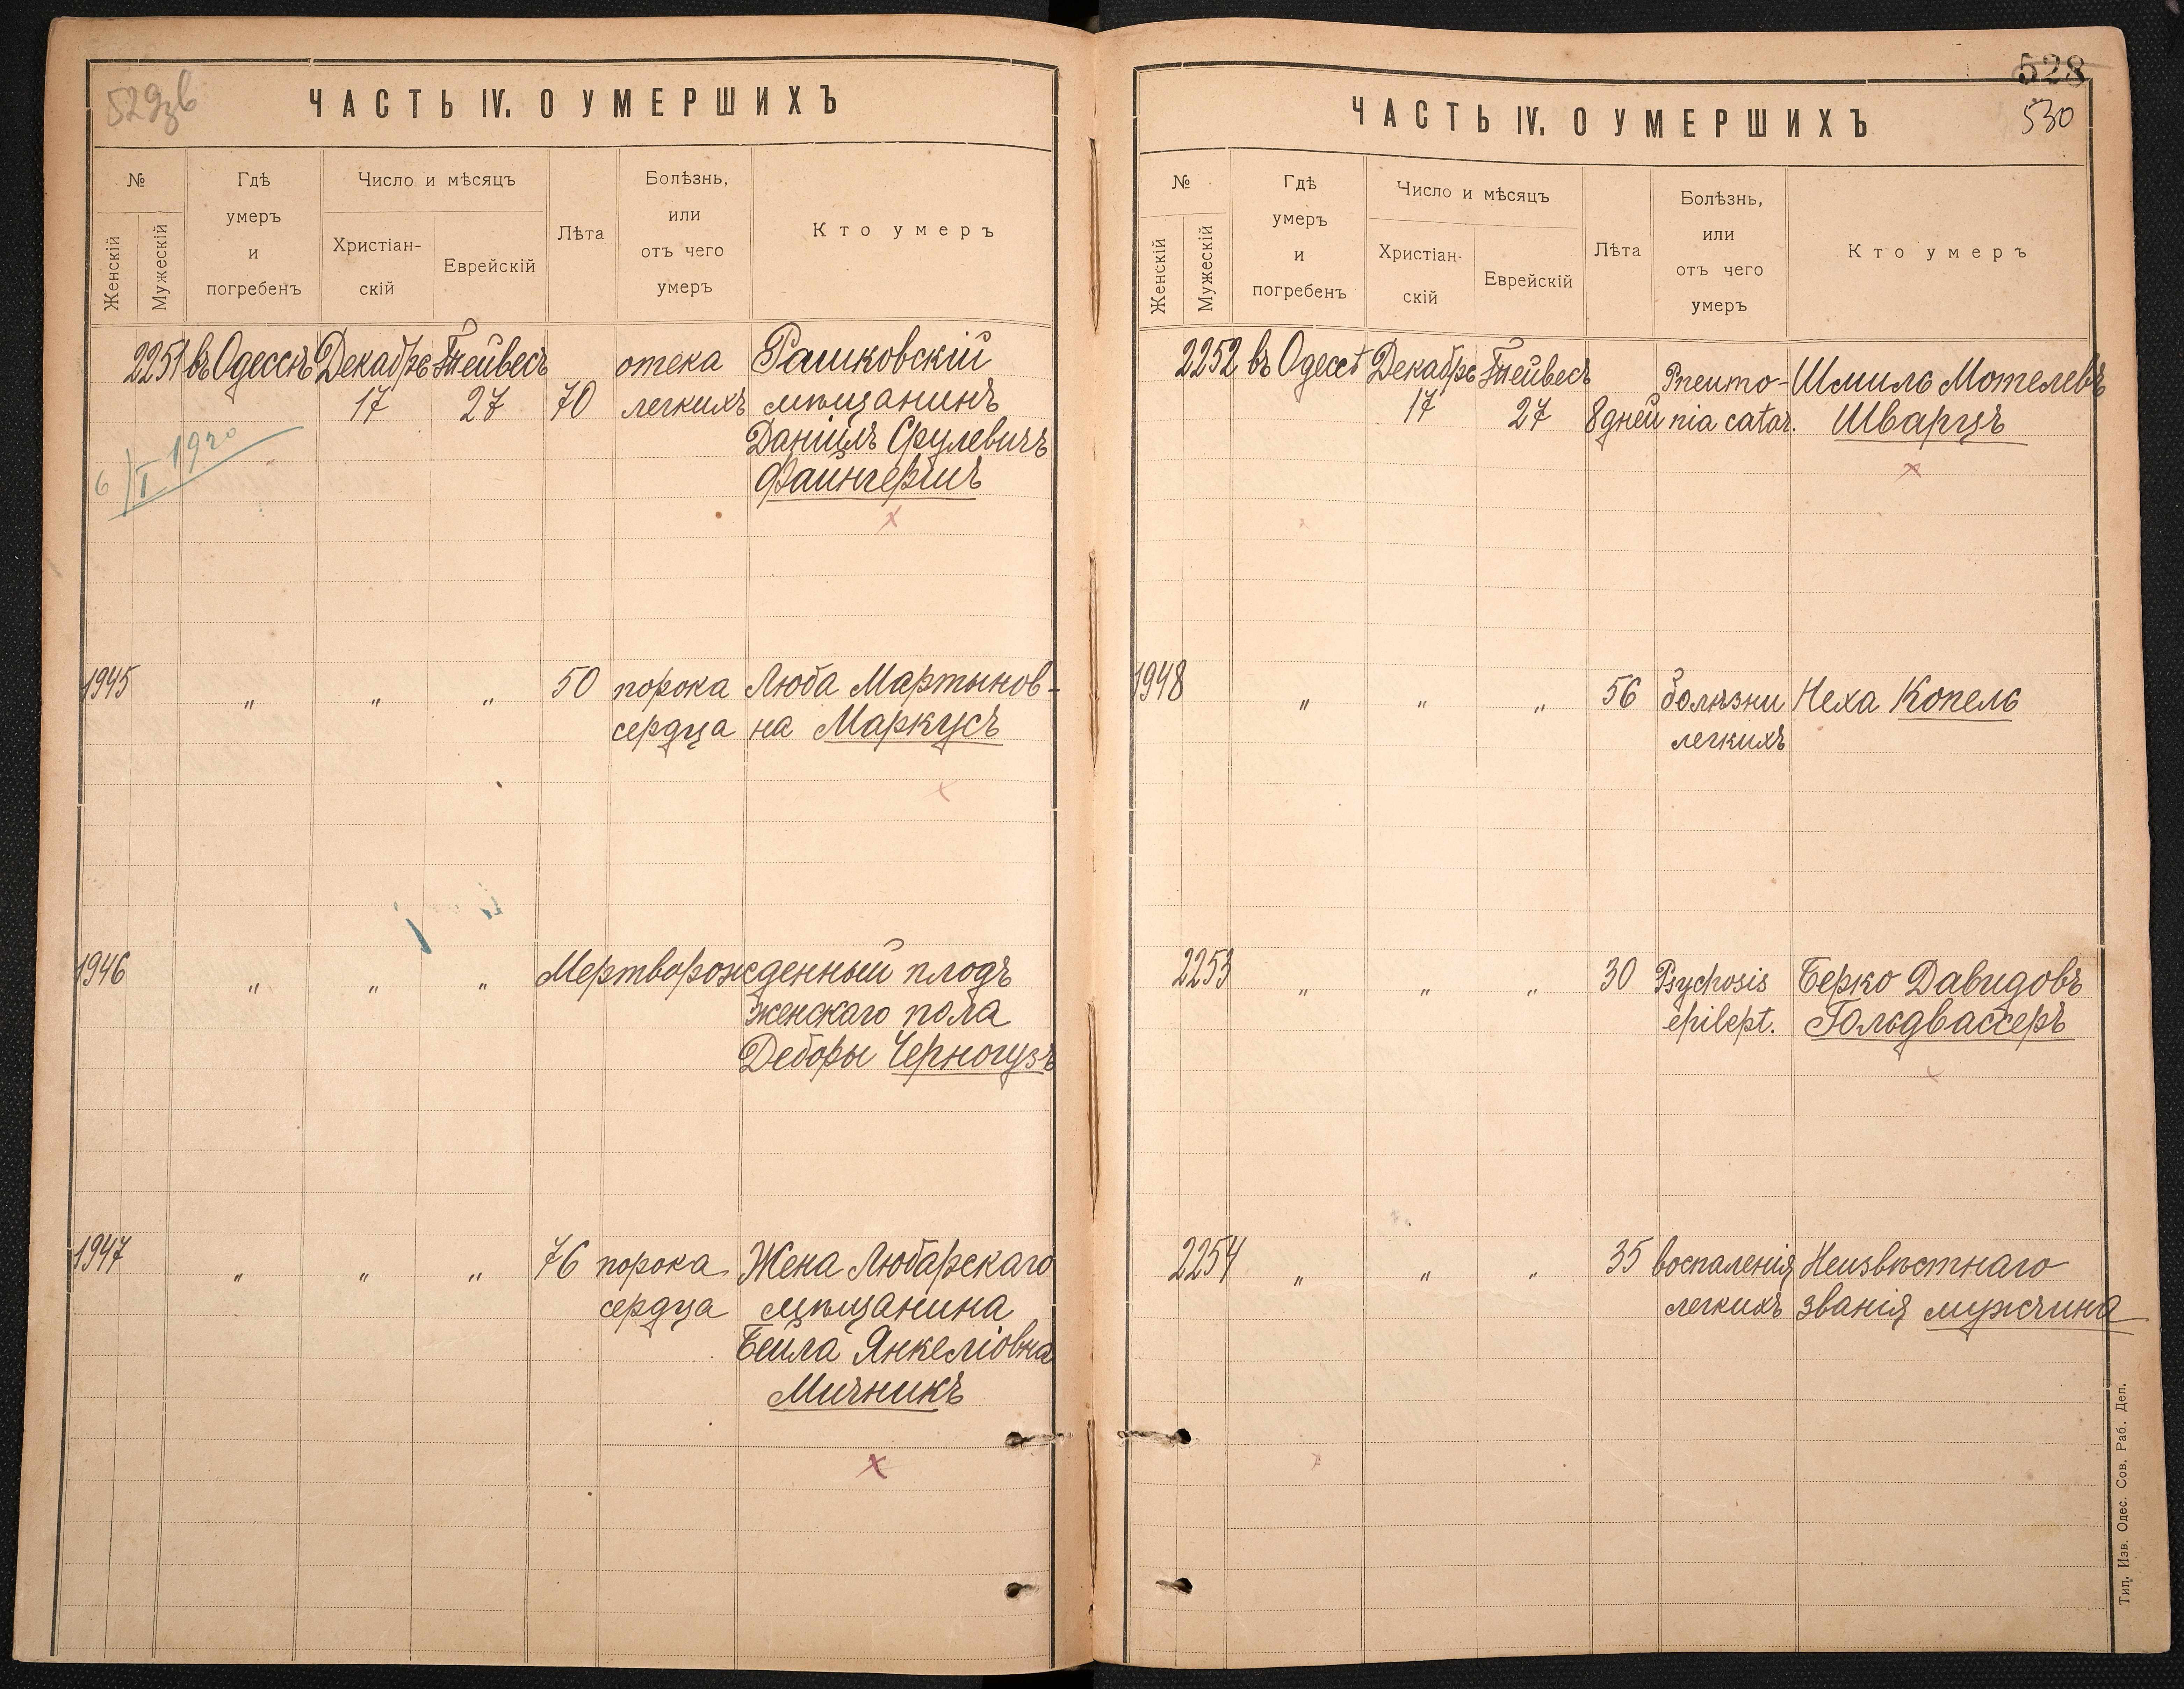 529зв
ЧАСТЬ IV. О УМЕРШИХЪ
№
Женскій
Мужескій
Гдѣ
умеръ
и
погребенъ
Число и мѣсяцъ
Христіан-
скій
Еврейскій
Лѣта
Болѣзнь,
или
отъ чего
умеръ
Кто умеръ
2251 въ Одессѣ Декабрь Тейвесъ отека Рашковскій
17 27 70 легкихъ мѣщанинъ
Даніилъ Срулевичъ
Файнгершъ
6/I 1920
1945 " " " 50 порока Люба Мартынов-
сердца на Маркусъ
1946 " " " Мертворожденный плодъ
женскаго пола
Деборы Черногузъ
1947 " " " 76 порока Жена Любарскаго
сердца мѣщанина
Бейла Янкеліовна
Мичникъ
528
530
ЧАСТЬ IV. О УМЕРШИХЪ
№
Женскій
Мужескій
Гдѣ
умеръ
и
погребенъ
Число и мѣсяцъ
Христіан-
скій
Еврейскій
Лѣта
Болѣзнь,
или
отъ чего
умеръ
Кто умеръ
2252 въ Одессѣ Декабрь Тейвесъ Pneumo- Шмиль Мотелевъ
17 27 8 дней nia catar. Шварцъ
1948 " " " 56 болѣзни Неха Копель
легкихъ
2253 " " " 30 Psychosis Берко Давидовъ
epilept. Гольдвассеръ
2254 " " " 35 воспаленія Неизвѣстнаго
легкихъ званія мужчина
Тип. Изв. Одес. Сов. Раб. Деп.